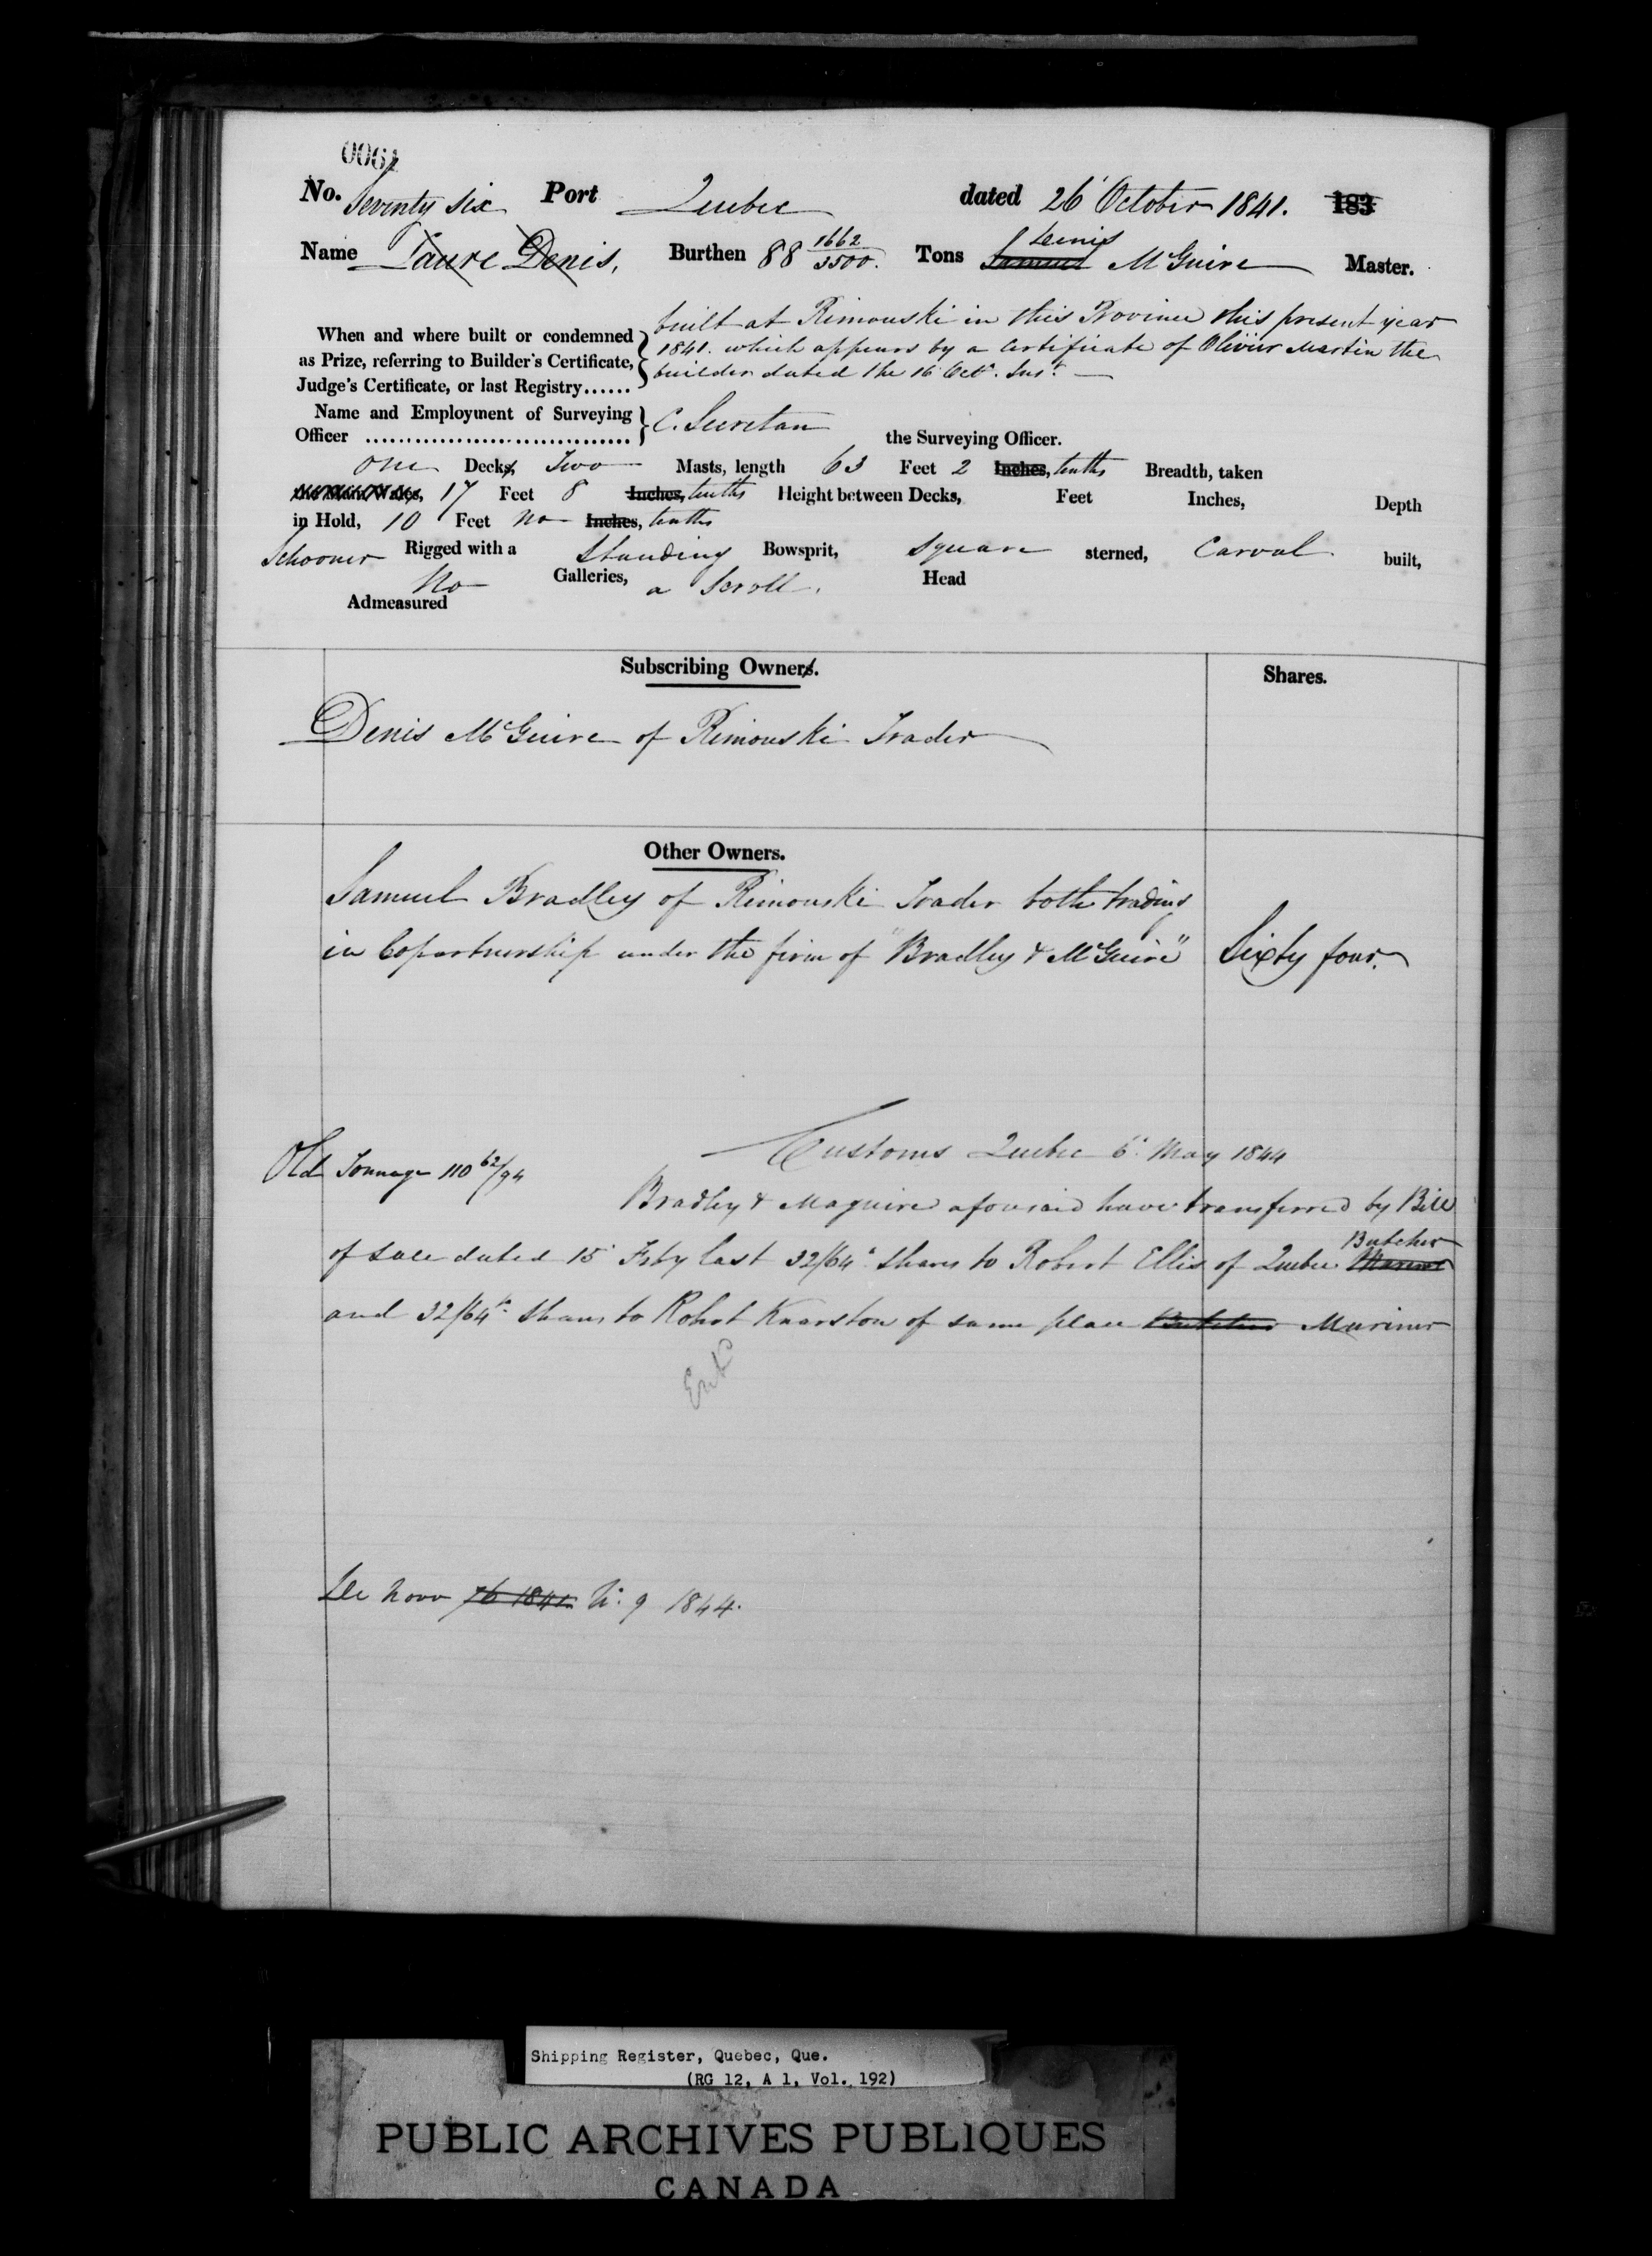 0061
No. Seventy Six Port Quebec dated 26 October 1841. 183
Denis
Name Laure Denis, Burthen 88 1662/3500. Tons Samuel McGuire Master.
When and where built or condemned as Prize, referring to Builder's Certificate, Judge's Certificate, or last Registry......
built at Rimouski in this Province this present year
1841. which appears by a Certificate of Olivier Martin the
builder dated the 16 Octr. Inst.
Name and Employment of Surveying Officer ................................. C. Secretan the Surveying Officer.
one Decks, Two Masts, length 63 Feet 2 Inches, tenths Breadth, taken
the Main Wales, 17 Feet 8 Inches, tenths Height between Decks, Feet Inches, Depth
in Hold, 10 Feet no Inches, tenths
Schooner Rigged with a Standing Bowsprit, Square sterned, Carvel built,
No Galleries, a Scroll. Head
Admeasured
Subscribing Owners. Shares.
Denis McGuire of Rimouski Trader
Other Owners.
Samuel Bradley of Rimouski Trader both trading
in Copartnership under the firm of "Bradley & McGuire" Sixty four.
Customs Quebec 6 May 1844
Old Tonnage 110 62/94
Bradley & Maguire aforesaid have transferred by Bill
Butcher
of Sale dated 15 Feby last 32/64 Shares to Robert Ellis of Quebec Mariner
and 32/64 Shares to Robert Knarston of same place Butcher Mariner
Entd
De Novo 76 1841 N. 9 1844.
Shipping Register, Quebec, Que.
(RG 12, A 1, Vol. 192)
PUBLIC ARCHIVES PUBLIQUES
CANADA